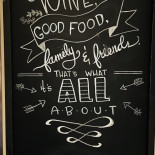 WINE,
GOOD FOOD,
family & friends
THAT'S WHAT
it's ALL
A·B·O·U·T